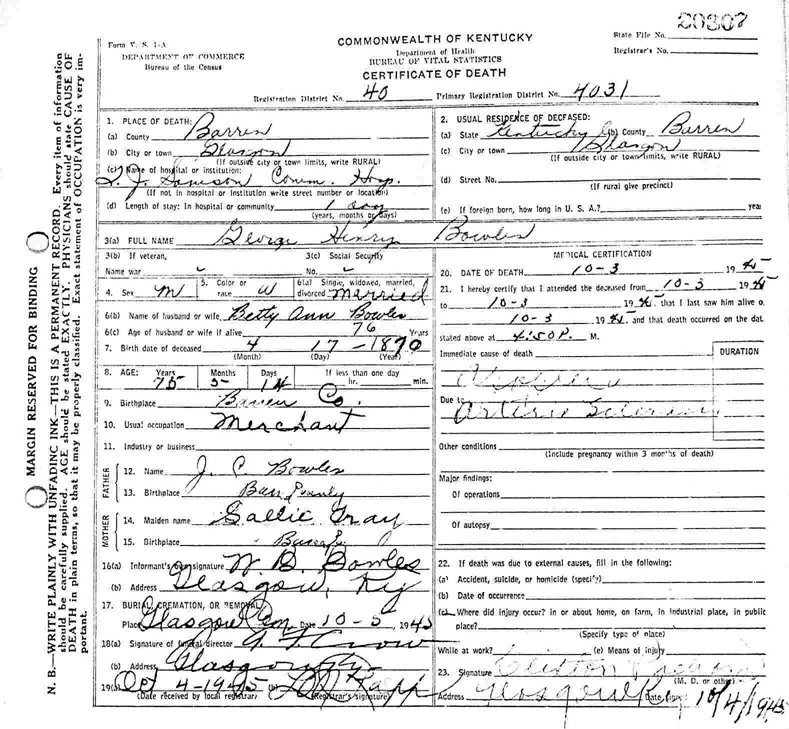 20307
COMMONWEALTH OF KENTUCKY
State File No.
Form V. S. 1-A
DEPARTMENT OF COMMERCE
Bureau of the Census
Department of Health
BUREAU OF VITAL STATISTICS
Registrar's No.
CERTIFICATE OF DEATH
Registration District No. 40 Primary Registration District No. 4031
1. PLACE OF DEATH:
(a) County Barren
(b) City or town Glasgow
(If outside city or town limits, write RURAL)
(c) Name of hospital or institution:
T. J. Samson Comm. Hosp.
(If not in hospital or institution write street number or location)
(d) Length of stay: In hospital or community 1 day
(years, months or days)
2. USUAL RESIDENCE OF DECEASED:
(a) State Kentucky (b) County Barren
(c) City or town Glasgow
(If outside city or town limits, write RURAL)
(d) Street No.
(If rural give precinct)
(e) If foreign born, how long in U. S. A.? year
3(a) FULL NAME George Henry Bowles
3(b) If veteran,
Name war -
3(c) Social Security
No. -
4. Sex M
5. Color or race W
6(a) Single, widowed, married, divorced Married
6(b) Name of husband or wife Betty Ann Bowles
6(c) Age of husband or wife if alive 76 Years
7. Birth date of deceased 4 17-1870
(Month) (Day) (Year)
8. AGE: Years Months Days If less than one day
75 5- 14 hr. min.
9. Birthplace Barren Co.
10. Usual occupation Merchant
11. Industry or business
FATHER
12. Name J. C. Bowles
13. Birthplace Barr County
MOTHER
14. Maiden name Sallie Gray
15. Birthplace
16(a) Informant's own signature W. B. Bowles
(b) Address Glasgow, Ky
17. BURIAL, CREMATION, OR REMOVAL
Place Glasgow Cem, Date 10-5, 1945
18(a) Signature of funeral director Crow
(b) Address Glasgow, Ky.
19(a) Oct 4-1945 (b) Rapp
(Date received by local registrar) (Registrar's signature)
MEDICAL CERTIFICATION
20. DATE OF DEATH 10-3 1945
21. I hereby certify that I attended the deceased from 10-3 1945
to 10-3 1945 that I last saw him alive o
10-3 1945 and that death occurred on the dat
stated above at 4:50P. M.
Immediate cause of death
DURATION
Due to
Arterio
Other conditions
(Include pregnancy within 3 months of death)
Major findings:
Of operations
Of autopsy
22. If death was due to external causes, fill in the following:
(a) Accident, suicide, or homicide (specify)
(b) Date of occurrence
(c) Where did injury occur? in or about home, on farm, in industrial place, in public
place?
(Specify type of place)
While at work? (e) Means of injury
23. Signature Clifton
(M. D. or other)
Address Glasgow Ky Date signed 10/4/1945
MARGIN RESERVED FOR BINDING
N. B.—WRITE PLAINLY WITH UNFADING INK—THIS IS A PERMANENT RECORD. Every item of information
should be carefully supplied. AGE should be stated EXACTLY. PHYSICIANS should state CAUSE OF
DEATH in plain terms, so that it may be properly classified. Exact statement of OCCUPATION is very im-
portant.